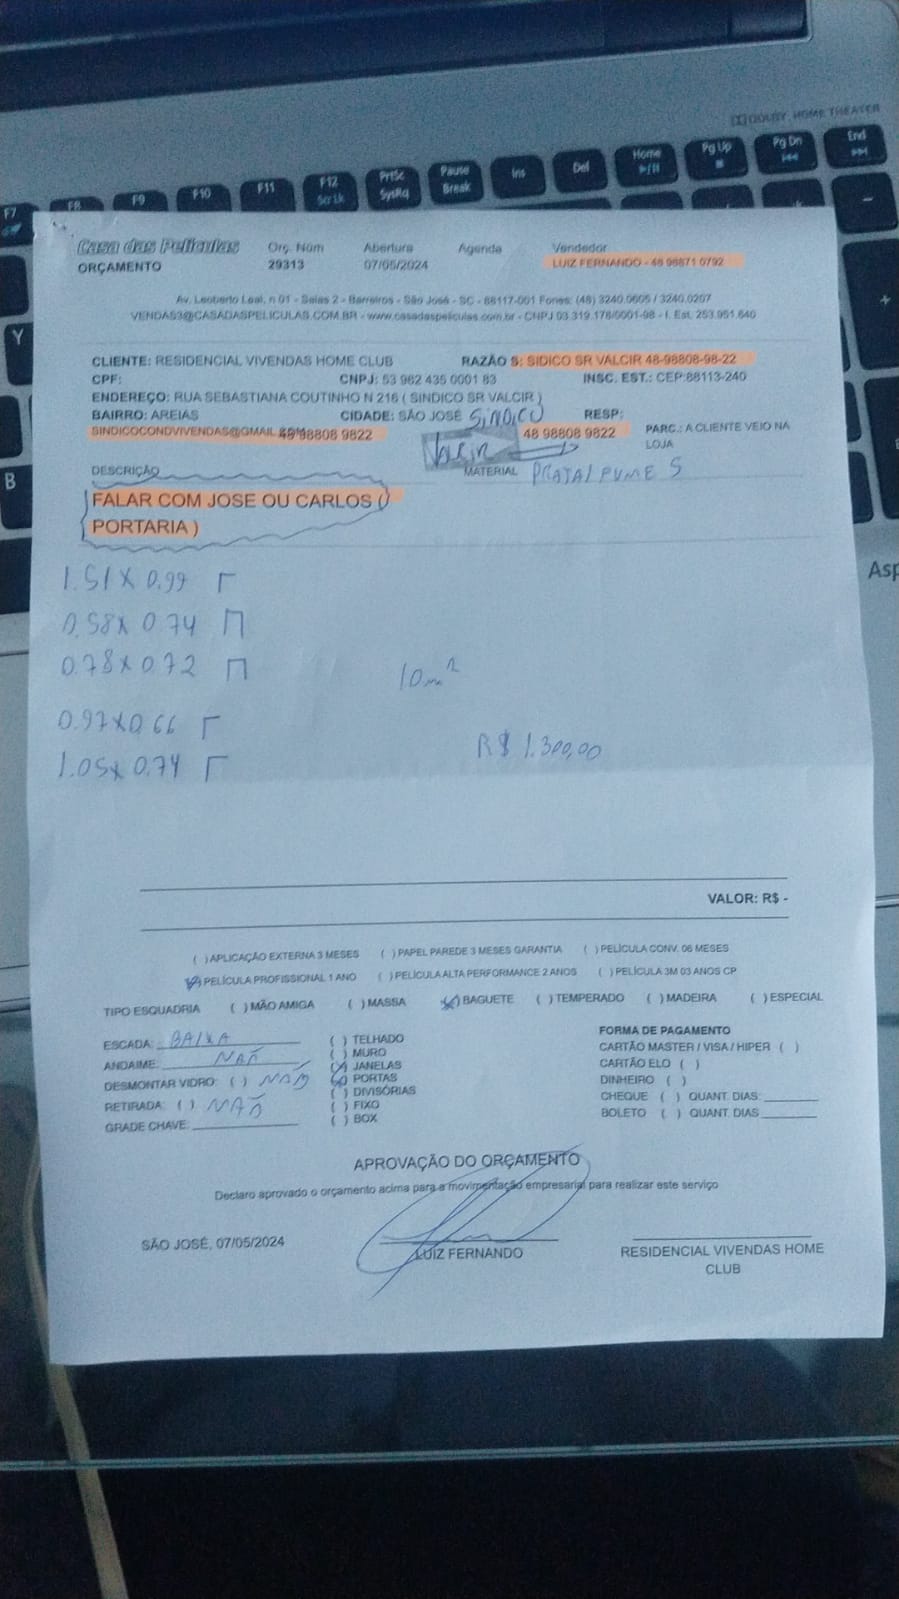 DOLBY HOME THEATER
F7 F8 F9 F10 F11 F12 Scr Lk PrtSc SysRq Pause Break Ins Del Home Pg Up Pg Dn End
Y
B
Asp
Casa das Películas Orç. Núm Abertura Agenda Vendedor
ORÇAMENTO 29313 07/05/2024 LUIZ FERNANDO - 48 98871 0792
Av. Leoberto Leal, n 01 - Salas 2 - Barreiros - São José - SC - 88117-001 Fones: (48) 3240.0605 / 3240.0207
VENDAS3@CASADASPELICULAS.COM.BR - www.casadaspeliculas.com.br - CNPJ 03.319.176/0001-98 - I. Est. 253.951.640
CLIENTE: RESIDENCIAL VIVENDAS HOME CLUB RAZÃO S: SIDICO SR VALCIR 48-98808-98-22
CPF: CNPJ: 53 962 435 0001 83 INSC. EST.: CEP:88113-240
ENDEREÇO: RUA SEBASTIANA COUTINHO N 216 ( SINDICO SR VALCIR )
BAIRRO: AREIAS CIDADE: SÃO JOSÉ SINDICO RESP:
SINDICOCONDVIVENDAS@GMAIL.COM 48 98808 9822 Valcir 48 98808 9822 PARC.: A CLIENTE VEIO NA LOJA
DESCRIÇÃO MATERIAL PRATA/FUME 5
FALAR COM JOSE OU CARLOS (
PORTARIA )
1.51 x 0.99
0.58 x 0.74
0.78 x 0.72
10m²
0.97 x 0.66
R$ 1.300,00
1.05 x 0.74
VALOR: R$ -
( ) APLICAÇÃO EXTERNA 3 MESES ( ) PAPEL PAREDE 3 MESES GARANTIA ( ) PELÍCULA CONV. 06 MESES
(X) PELÍCULA PROFISSIONAL 1 ANO ( ) PELÍCULA ALTA PERFORMANCE 2 ANOS ( ) PELÍCULA 3M 03 ANOS CP
TIPO ESQUADRIA ( ) MÃO AMIGA ( ) MASSA (X) BAGUETE ( ) TEMPERADO ( ) MADEIRA ( ) ESPECIAL
ESCADA: BAIXA
ANDAIME: NAÃ
DESMONTAR VIDRO: ( ) NÃO
RETIRADA: ( ) NÃO
GRADE CHAVE:
( ) TELHADO
( ) MURO
(X) JANELAS
(X) PORTAS
( ) DIVISÓRIAS
( ) FIXO
( ) BOX
FORMA DE PAGAMENTO
CARTÃO MASTER / VISA / HIPER ( )
CARTÃO ELO ( )
DINHEIRO ( )
CHEQUE ( ) QUANT. DIAS:
BOLETO ( ) QUANT. DIAS
APROVAÇÃO DO ORÇAMENTO
Declaro aprovado o orçamento acima para a movimentação empresarial para realizar este serviço
SÃO JOSÉ, 07/05/2024
LUIZ FERNANDO
RESIDENCIAL VIVENDAS HOME
CLUB